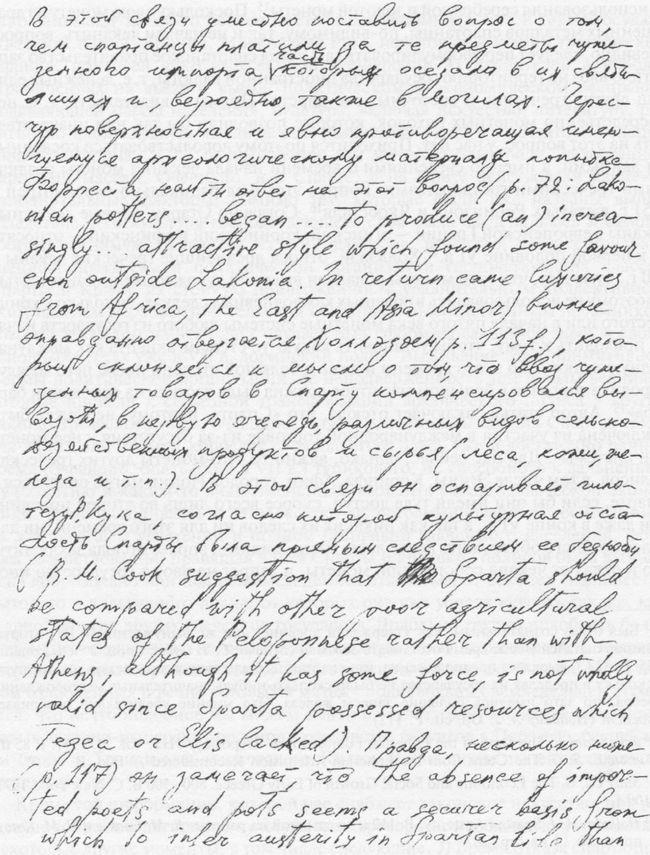 В этой связи уместно поставить вопрос о том,
чем спартанцы платили за те предметы чуже-
земного импорта, часть которых оседали в их святи-
лищах и, вероятно, также в могилах. Черес-
чур поверхностная и явно противоречащая имею-
щемуся археологическому материалу попытка
Форреста найти ответ на этот вопрос (p. 72: Lako-
nian potters.... began..... to produce (an) increa-
singly... attractive style which found some favour
even outside Lakonia. In return came luxuries
from Africa, the East and Asia Minor) вполне
оправданно отвергается Холлэдеем (p. 113f.), кото-
рый склоняется к мысли о том, что ввоз чуже-
земных товаров в Спарту компенсировался вы-
возом, в первую очередь, различных видов сельско-
хозяйственных продуктов и сырья (леса, кожи, же-
леза и т.п.) В этой связи он оспаривает гипо-
тезу Р. Кука согласно которой культурная отста-
лость Спарты была прямым следствием ее бедности
(R. M. Cook suggestion that Sparta should
be compared with other poor agricultural
states of the Peloponnese rather than with
Athens, although it has some force, is not wholly
valid since Sparta possessed resources which
Tegea or Elis lacked). Правда, несколько ниже
p. 117) он замечает, что the absence of impor-
ted poets and pots seems a securer basis from
which to infer austerity in Spartan life than